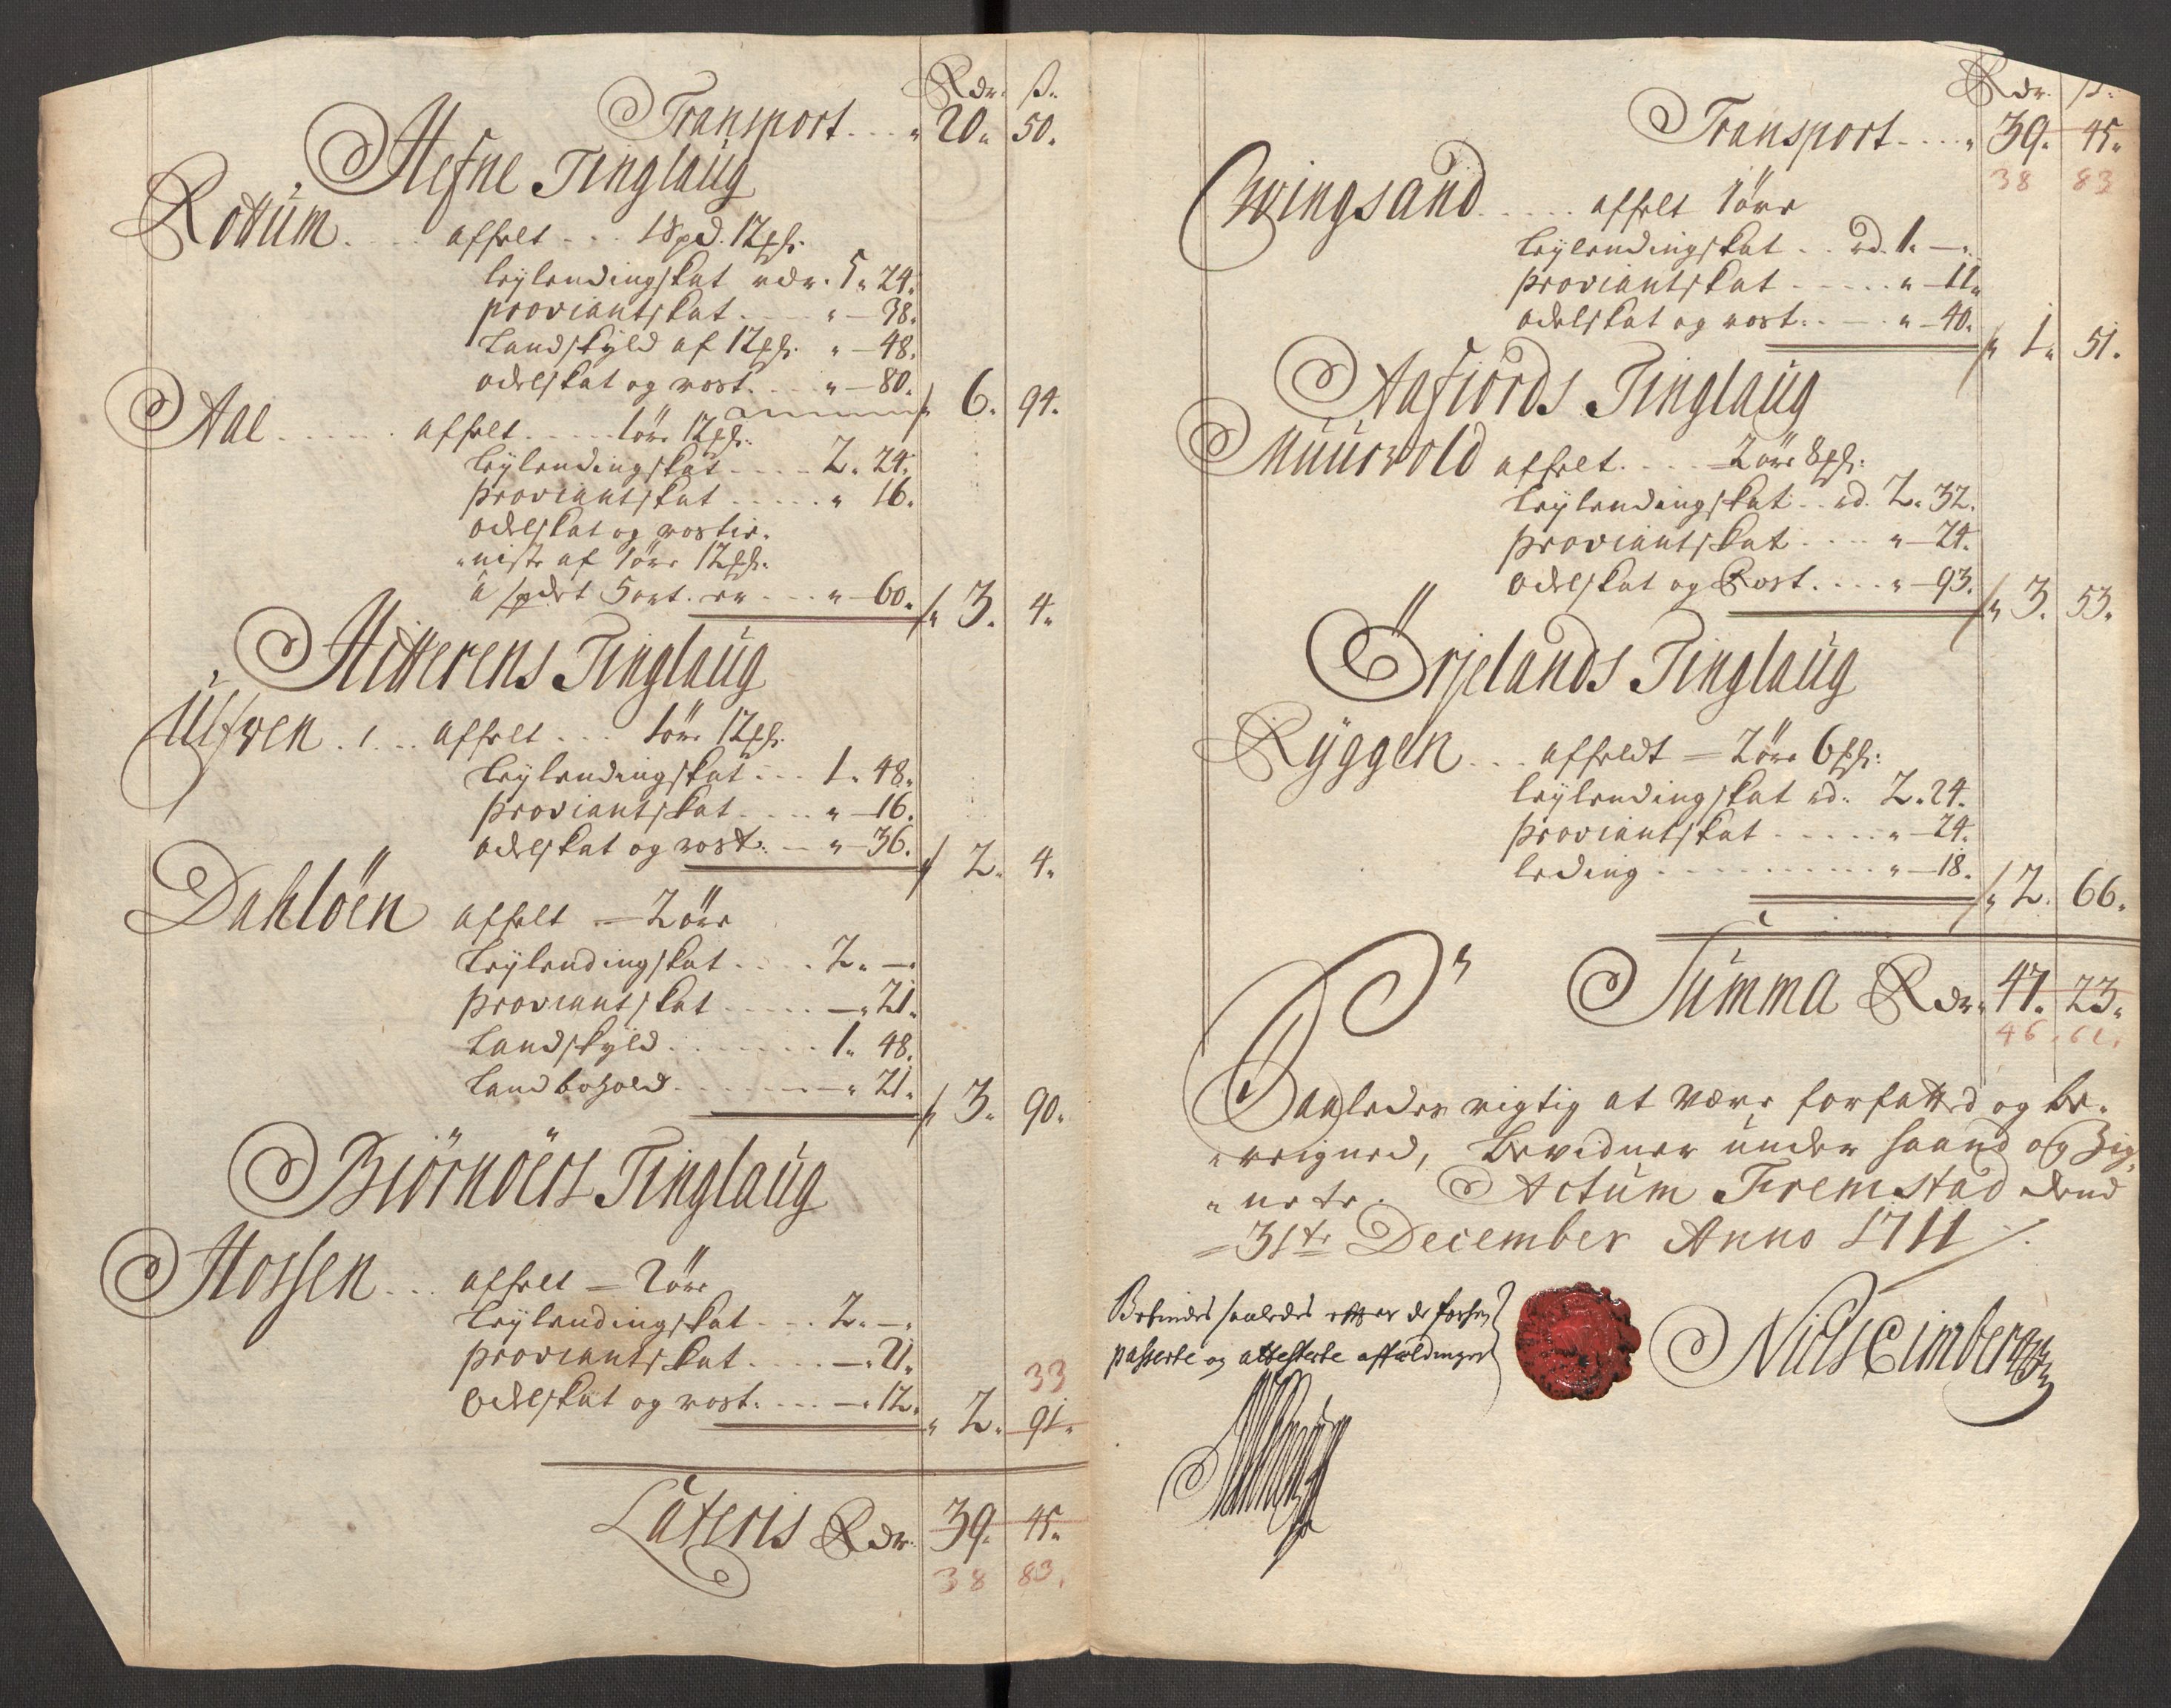 Rdr. ß.
Transport . . . 20. 50.
Hefne Tinglaug
Rottum . . . . affelt . . . 1 Spd. 12 ℔.
Leÿlendingskat rdr. 5. 24.
Proviantskat . . . „ — 38.
Landskyld af 12 ℔. „ — 48.
odelskat og rost. . . . „ — 80. 6. 94.
Aae . . . . . . affelt . . . . . 1 öre 12 ℔.
Leÿlendingskat . . . . 2. 24.
Proviantskat . . . . . „ 16.
odelskat og rostie„
„niste af 1 öre 12 ℔.
à spdet 5 ort. er . . . „ — 60. 3. 4.
Hitterens Tinglaug
Ulfven . 1 . . . affelt . . . 1 öre 12 ℔.
Leÿlendingskat . . . 1. 48.
Proviantskat . . . . „ — 16.
odelskat og rost. — „ — 36. 2. 4.
Dahlöen affelt — 2 öre
Leÿlendingskat . . . . 2. —.
Proviantskat . . . . . —. 21.
Landskyld . . . . . . . 1. 48.
Landbohold . . . . . . —. 21. 3. 90.
Biörnöers Tinglaug
Hossen . . . affelt — 2 öre
Leÿlendingskat . . . 2. —.
Proviantskat . . . . —. 21. 33
Odelskat og rost. . . . —. 12. „ 2. 91.
Lateris Rdr. 39. 45.
38 83.
Rdr. ß.
Transport . . . . . 39. 45.
38 83
Qvingsand . . . . . affelt 1 öre
Leÿlendingskat . . rd. 1. —.
Proviantskat . . . . . „ — 11.
odelskat og rost. . — . „ — 40. 1. 51.
Aafiords Tinglaug
Muurvold affelt . . . . 2 öre 8 ℔.
Leÿlendingskat . . rd. 2. 32.
Proviantskat . . . . „ — 24.
Odelskat og Rost. . . . „ — 93. 3. 53.
Örjelands Tinglaug
Rÿggen . . . affeldt — 2 öre 6 ℔.
Leÿlendingskat rd. 2. 24.
Proviantskat . . . . . „ — 24.
Leding . . . . . . . . . . „ — 18. 2. 66.
Summa Rdr. 47. 23.
46. 61.
Saaledes rigtig at være forfatted og be„
„reigned, bevidner under haand og Zig„
„nete. Actum Fremstad dend
31te December Anno 1711
Befindes saaledes efter de
passerte og attesterte affældinger
Niels Eimberg